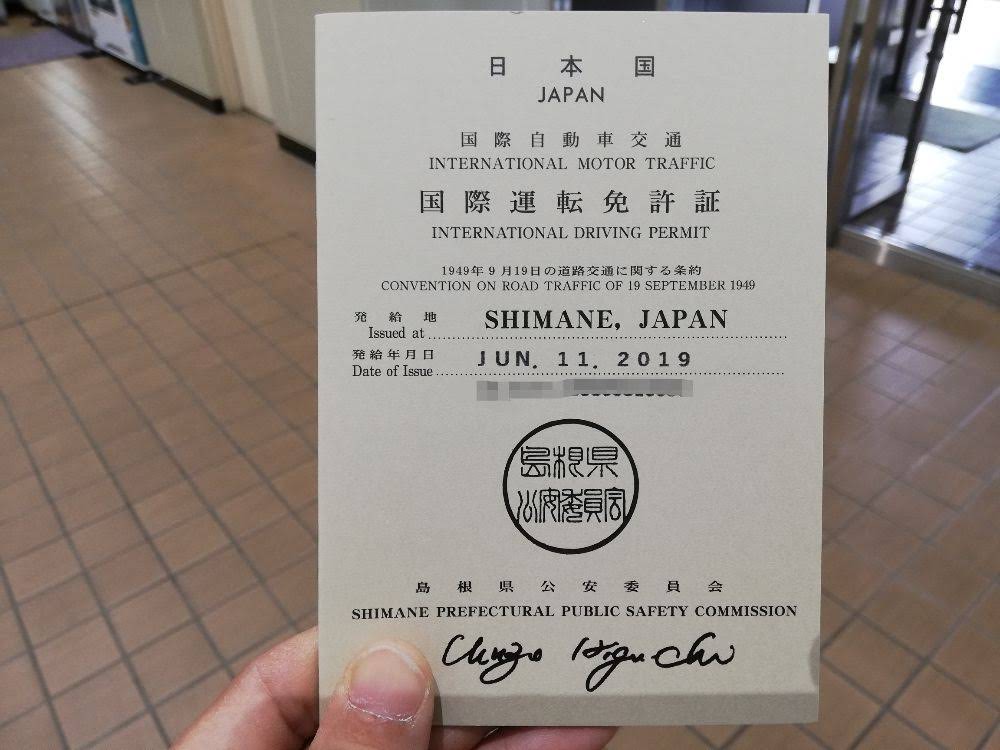 日本国
JAPAN
国際自動車交通
INTERNATIONAL MOTOR TRAFFIC
国際運転免許証
INTERNATIONAL DRIVING PERMIT
1949年9月19日の道路交通に関する条約
CONVENTION ON ROAD TRAFFIC OF 19 SEPTEMBER 1949
発給地
Issued at SHIMANE, JAPAN
発給年月日
Date of Issue JUN. 11. 2019
島根県
公安委員会
島根県公安委員会
SHIMANE PREFECTURAL PUBLIC SAFETY COMMISSION
Higuchi